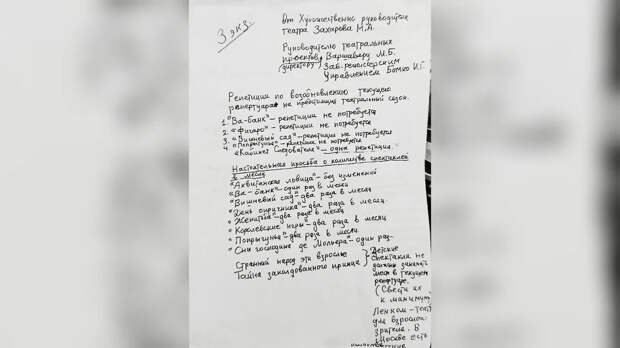 3 экз.
От Художественно руководителя
театра Захарова М.А.
Руководителю театральных
проектов Варшаверу М.Б.
(директору)
Зав. режиссёрским
Управлением Бомко И.Г.
Репетиции по возобновлению текущего
репертуара на предстоящий театральный сезон.
1 "Ва-банк" – репетиции не потребуется
2 "Фигаро" – репетиции не потребуется
3 "Вишнёвый сад" – репетиция не потребуется
4 "Попрыгунья" – репетиция не потребуется
"Капкан Следователя" – одна репетиция.
Настоятельная просьба о количестве спектаклей
в месяц
"Аквитанская львица" – без изменений
"Ва-банк" – один раз в месяц
"Вишнёвый сад" – два раза в месяц
"День опричника" – два раза в месяц.
"Женитьба" – два раза в месяц
"Королевские игры" – два раза в месяц
"Попрыгунья" – два раза в месяц.
"Сны господина де Мольера" – один раз
Странный народ эти взрослые
Тайна заколдованного принца
Детские
спектакли не
должны занимать
мест в текущем
репертуаре.
(Свести их
к минимуму
Ленком – театр
для взрослого
зрителя. В
Москве есть